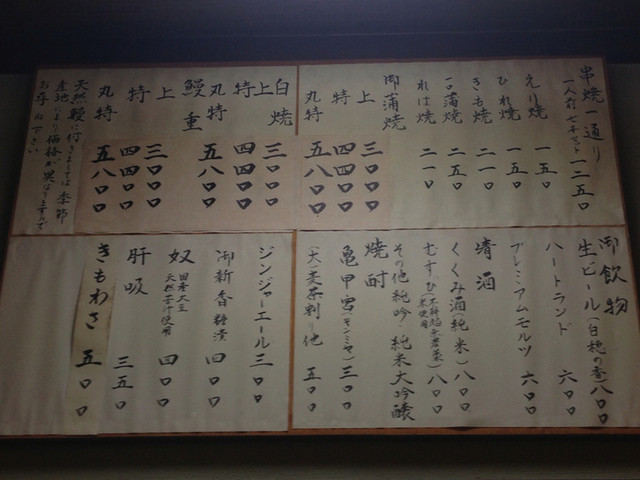 串焼一通り 一二五〇
一人前 七本セット
えり焼 一五〇
ひれ焼 一五〇
きも焼 二一〇
一口蒲焼 二五〇
れば焼 二一〇
御蒲焼
上 三〇〇〇
特 四四〇〇
丸特 五八〇〇
白焼
上 三〇〇〇
特 四四〇〇
丸特 五八〇〇
鰻重
上 三〇〇〇
特 四四〇〇
丸特 五八〇〇
天然鰻に付きましては季節
産地により価格が異なりますので
お尋ね下さい
御飲物
生ビール(白穂の香)八〇〇
ハートランド 六〇〇
プレミアムモルツ 六〇〇
清酒
くくみ酒(純米)八〇〇
むすひ 八〇〇
その他純吟・純米大吟醸
焼酎
亀甲宮(キンミヤ)三〇〇
(大麦茶割り他 五〇〇
ジンジャーエール 三〇〇
御新香糠漬 四〇〇
奴 四〇〇
天然苦汁使用
肝吸 三五〇
きもわさ 五〇〇